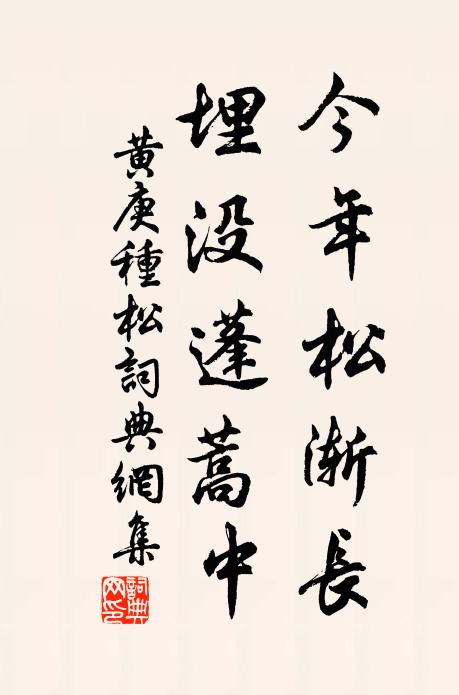 今年松漸長
埋没蓬蒿中
黄庚種松詞典網集
詞典網印